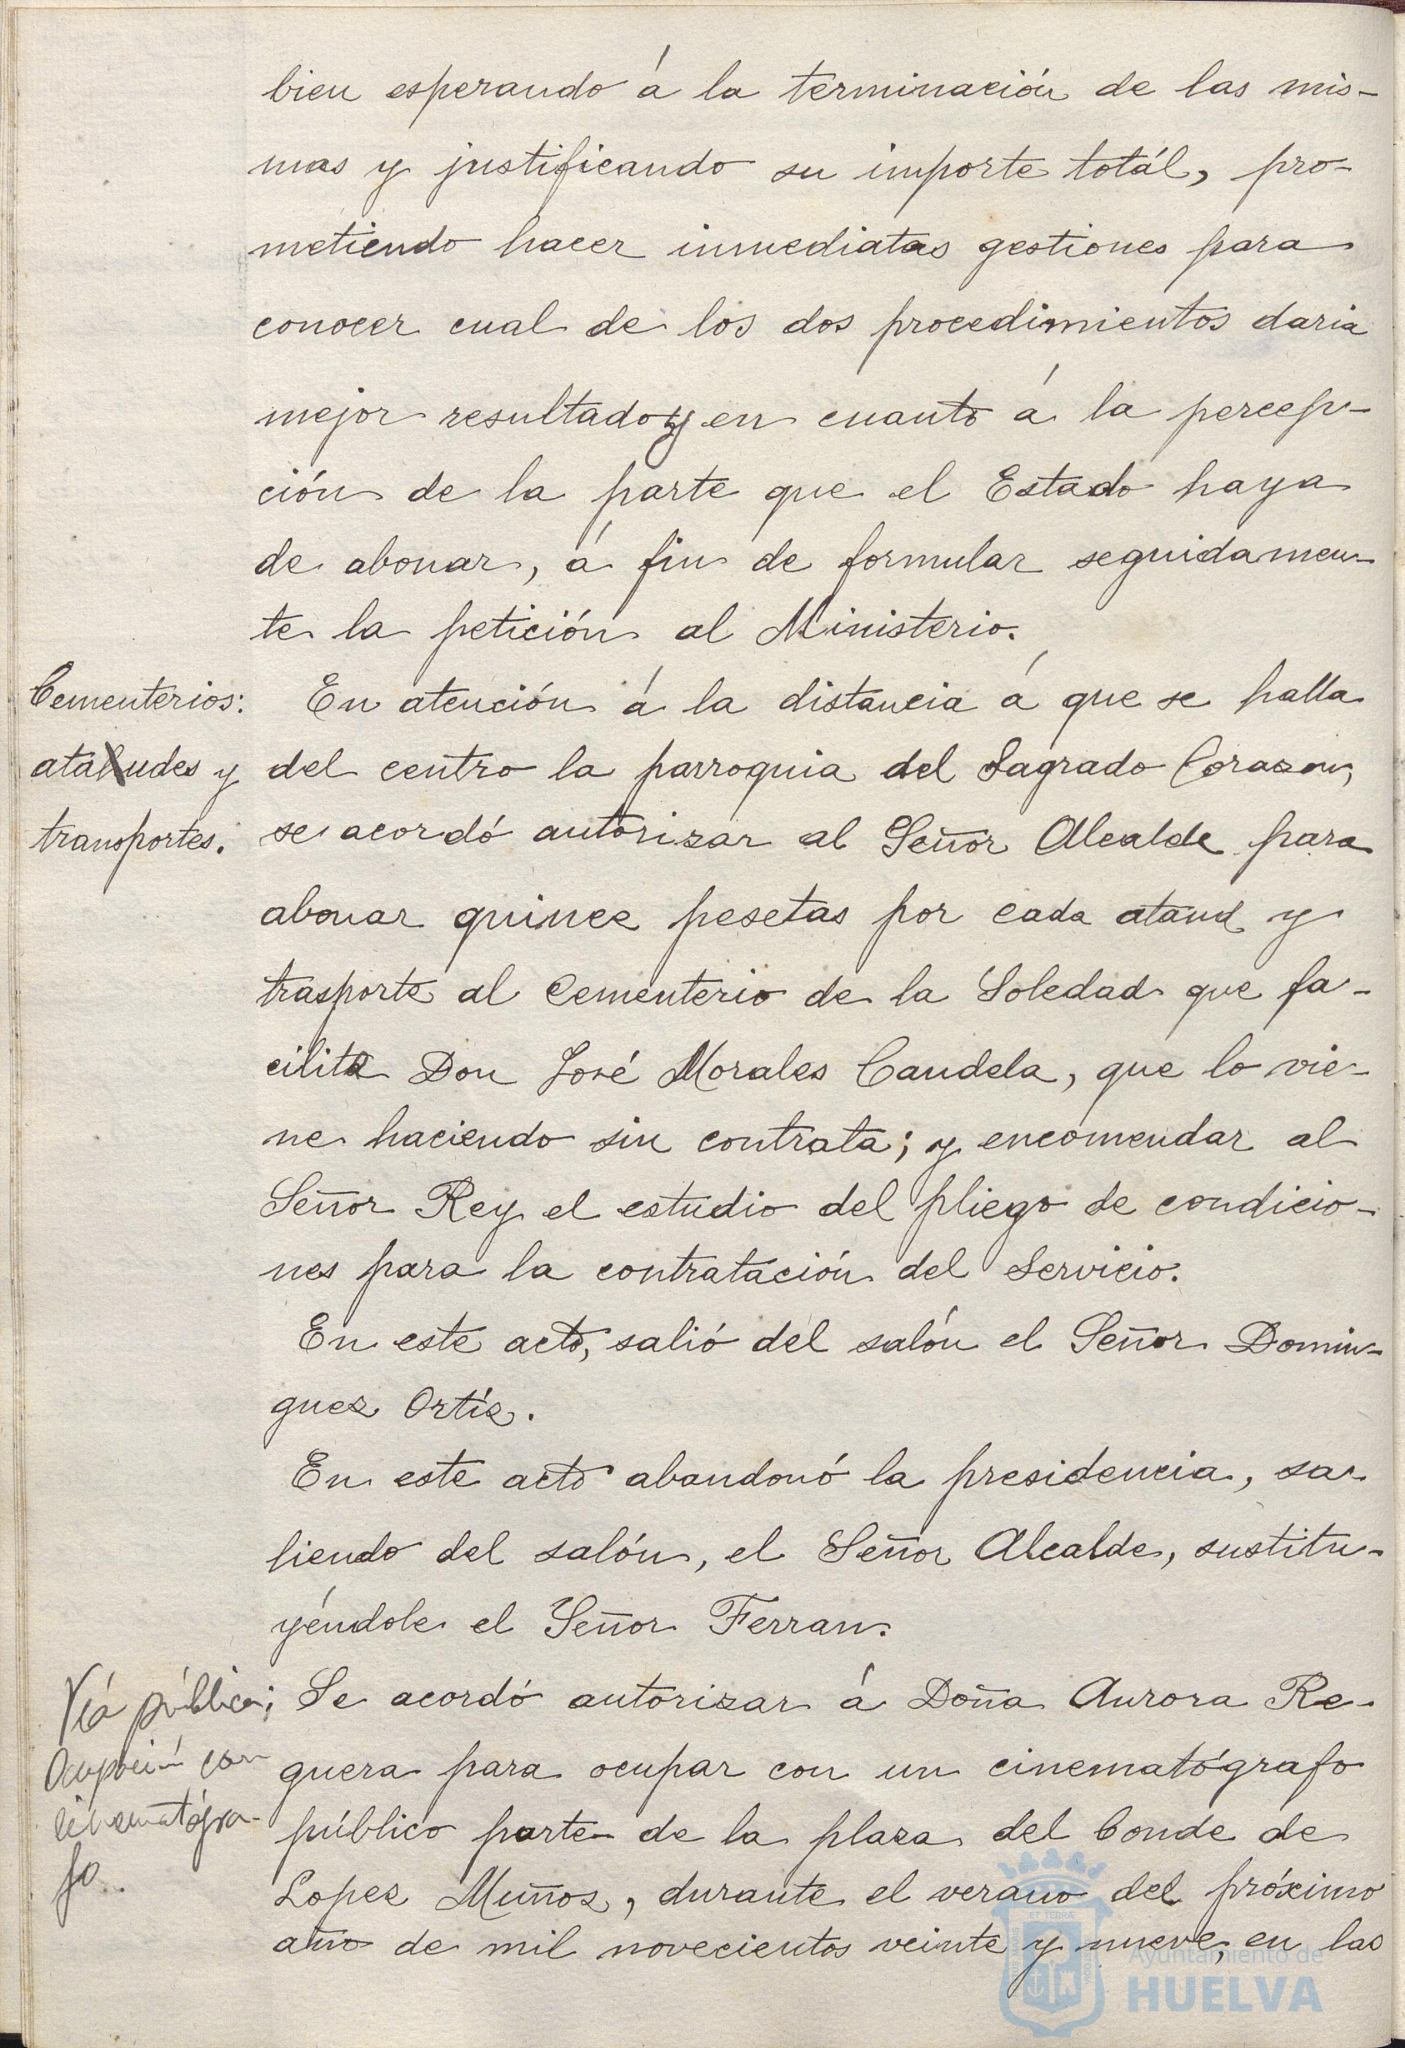 bien esperando á la terminación de las mis-
mas y justificando su importe totál, pro-
metiendo hacer inmediatas gestiones para
conocer cual de los dos procedimientos daria
mejor resultado y en cuanto á la percep-
ción de la parte que el Estado haya
de abonar, á fin de formular seguidamen-
te la petición al Ministerio.
Cementerios:
ataudes y
transportes.
En atención á la distancia á que se halla
del centro la parroquia del Sagrado Corazon,
se acordó autorizar al Señor Alcalde para
abonar quince pesetas por cada ataud y
trasporte al Cementerio de la Soledad que fa-
cilita Don José Morales Candela, que lo vie-
ne haciendo sin contrata; y encomendar al
Señor Rey el estudio del pliego de condicio-
nes para la contratación del Servicio.
En este acto, salió del salón el Señor Domin-
guez Ortíz.
En este acto abandonó la presidencia, sa-
liendo del salón, el Señor Alcalde, sustitu-
yéndole el Señor Ferran.
Vía pública;
Ocupación con
cinematógra-
fo.
Se acordó autorizar á Doña Aurora Re-
guera para ocupar con un cinematógrafo
público parte de la plaza del Conde de
Lopez Muñoz, durante el verano del próximo
año de mil novecientos veinte y nueve, en las
Ayuntamiento de
HUELVA